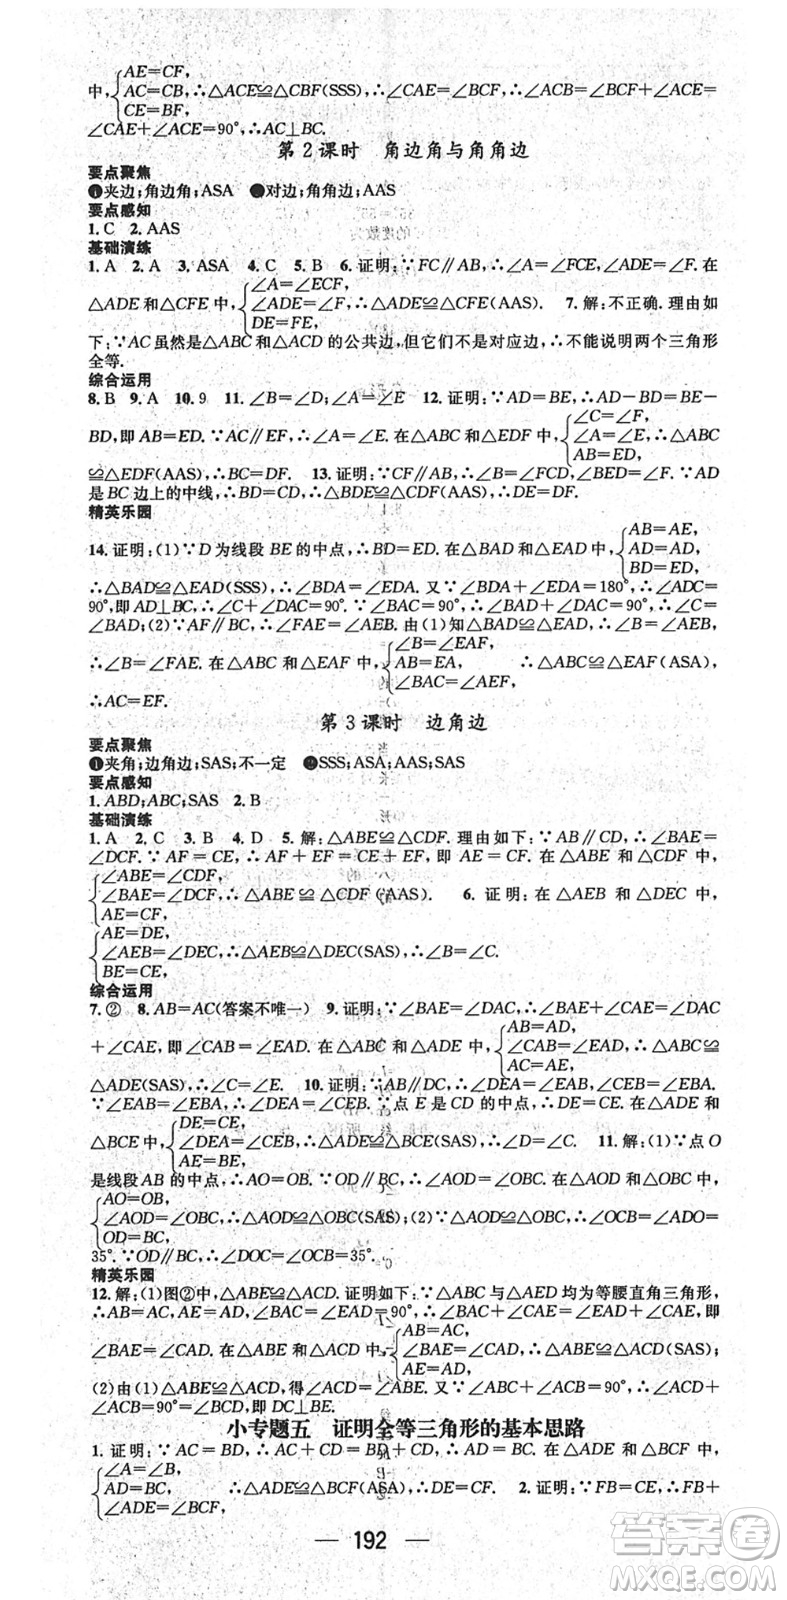 中,{AE=CF, AC=CB, CE=BF,∴△ACE≌△CBF(SSS),∴∠CAE=∠BCF,∴∠ACB=∠BCF+∠ACE=
∠CAE+∠ACE=90°,∴AC⊥BC.
第2课时 角边角与角角边
要点聚焦
❶夹边;角边角;ASA ❷对边;角角边;AAS
要点感知
1. C 2. AAS
基础演练
1. A 2. A 3. ASA 4. C 5. B 6. 证明:∵FC∥AB,∴∠A=∠FCE,∠ADE=∠F. 在
△ADE和△CFE中,{∠A=∠ECF, ∠ADE=∠F, DE=FE,∴△ADE≌△CFE(AAS). 7. 解:不正确. 理由如
下:∵AC虽然是△ABC和△ACD的公共边,但它们不是对应边,∴不能说明两个三角形
全等.
综合运用
8. B 9. A 10. 9 11. ∠B=∠D;∠A=∠E 12. 证明:∵AD=BE,∴AD-BD=BE-
BD,即AB=ED. ∵AC∥EF,∴∠A=∠E. 在△ABC和△EDF中,{∠C=∠F, ∠A=∠E, AB=ED,∴△ABC
≌△EDF(AAS),∴BC=DF. 13. 证明:∵CF∥AB,∴∠B=∠FCD,∠BED=∠F. ∵AD
是BC边上的中线,∴BD=CD,∴△BDE≌△CDF(AAS),∴DE=DF.
精英乐园
14. 证明:(1)∵D为线段BE的中点,∴BD=ED. 在△BAD和△EAD中,{AB=AE, AD=AD, BD=ED,
∴△BAD≌△EAD(SSS),∴∠BDA=∠EDA. 又∵∠BDA+∠EDA=180°,∴∠ADC=
90°,即AD⊥BC,∴∠C+∠DAC=90°. ∵∠BAC=90°,∴∠BAD+∠DAC=90°,∴∠C=
∠BAD;(2)∵AF∥BC,∴∠FAE=∠AEB. 由(1)知△BAD≌△EAD,∴∠B=∠AEB,
∴∠B=∠FAE. 在△ABC和△EAF中,{∠B=∠EAF, AB=EA, ∠BAC=∠AEF, ∴△ABC≌△EAF(ASA),
∴AC=EF.
第3课时 边角边
要点聚焦
❶夹角;边角边;SAS;不一定 ❷SSS;ASA;AAS;SAS
要点感知
1. ABD;ABC;SAS 2. B
基础演练
1. A 2. C 3. B 4. D 5. 解:△ABE≌△CDF. 理由如下:∵AB∥CD,∴∠BAE=
∠DCF. ∵AF=CE,∴AF+EF=CE+EF,即AE=CF. 在△ABE和△CDF中,
{∠ABE=∠CDF, ∠BAE=∠DCF, AE=CF,∴△ABE≌△CDF(AAS). 6. 证明:在△AEB和△DEC中,
{AE=DE, ∠AEB=∠DEC, BE=CE,∴△AEB≌△DEC(SAS),∴∠B=∠C.
综合运用
7. ② 8. AB=AC(答案不唯一) 9. 证明:∵∠BAE=∠DAC,∴∠BAE+∠CAE=∠DAC
+∠CAE,即∠CAB=∠EAD. 在△ABC和△ADE中,{AB=AD, ∠CAB=∠EAD, AC=AE,∴△ABC≌
△ADE(SAS),∴∠C=∠E. 10. 证明:∵AB∥DC,∴∠DEA=∠EAB,∠CEB=∠EBA.
∵∠EAB=∠EBA,∴∠DEA=∠CEB. ∵点E是CD的中点,∴DE=CE. 在△ADE和
△BCE中,{DE=CE, ∠DEA=∠CEB, AE=BE,∴△ADE≌△BCE(SAS),∴∠D=∠C. 11. 解:(1)∵点O
是线段AB的中点,∴AO=OB. ∵OD∥BC,∴∠AOD=∠OBC. 在△AOD和△OBC中,
{AO=OB, ∠AOD=∠OBC, OD=BC,∴△AOD≌△OBC(SAS);(2)∵△AOD≌△OBC,∴∠OCB=∠ADO=
35°. ∵OD∥BC,∴∠DOC=∠OCB=35°.
精英乐园
12. 解:(1)图②中,△ABE≌△ACD. 证明如下:∵△ABC与△AED均为等腰直角三角形,
∴AB=AC,AE=AD,∠BAC=∠EAD=90°,∴∠BAC+∠CAE=∠EAD+∠CAE,即
∠BAE=∠CAD. 在△ABE和△ACD中,{AB=AC, ∠BAE=∠CAD, AE=AD,∴△ABE≌△ACD(SAS);
(2)由(1)△ABE≌△ACD得∠ACD=∠ABE. 又∵∠ACB=45°,∴∠BCD=∠ACD+
∠ACB=90°,即DC⊥BE.
小专题五 证明全等三角形的基本思路
1. 证明:∵AC=BD,∴AC+CD=BD+CD,∴AD=BC. 在△ADE和△BCF中,
{∠A=∠B, AD=BC, ∠ADE=∠BCF, ∴△ADE≌△BCF(ASA),∴DE=CF. 2. 证明:∵FB=CE,∴FB+
— 192 —
答案圈
MXQE.COM